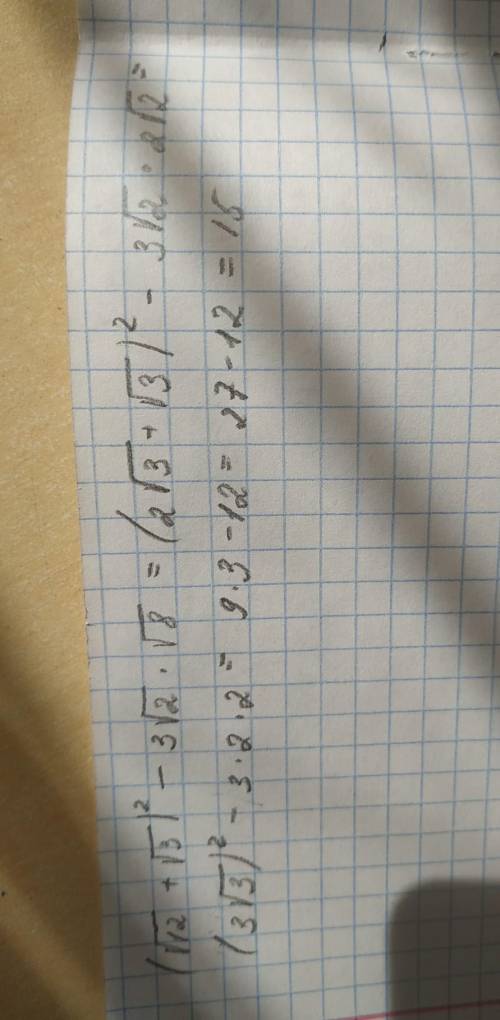 (√12 + √3)² - 3√2 · √8 = (2√3 + √3)² - 3√2 · 2√2 =
(3√3)² - 3 · 2 · 2 = 9 · 3 - 12 = 27 - 12 = 15